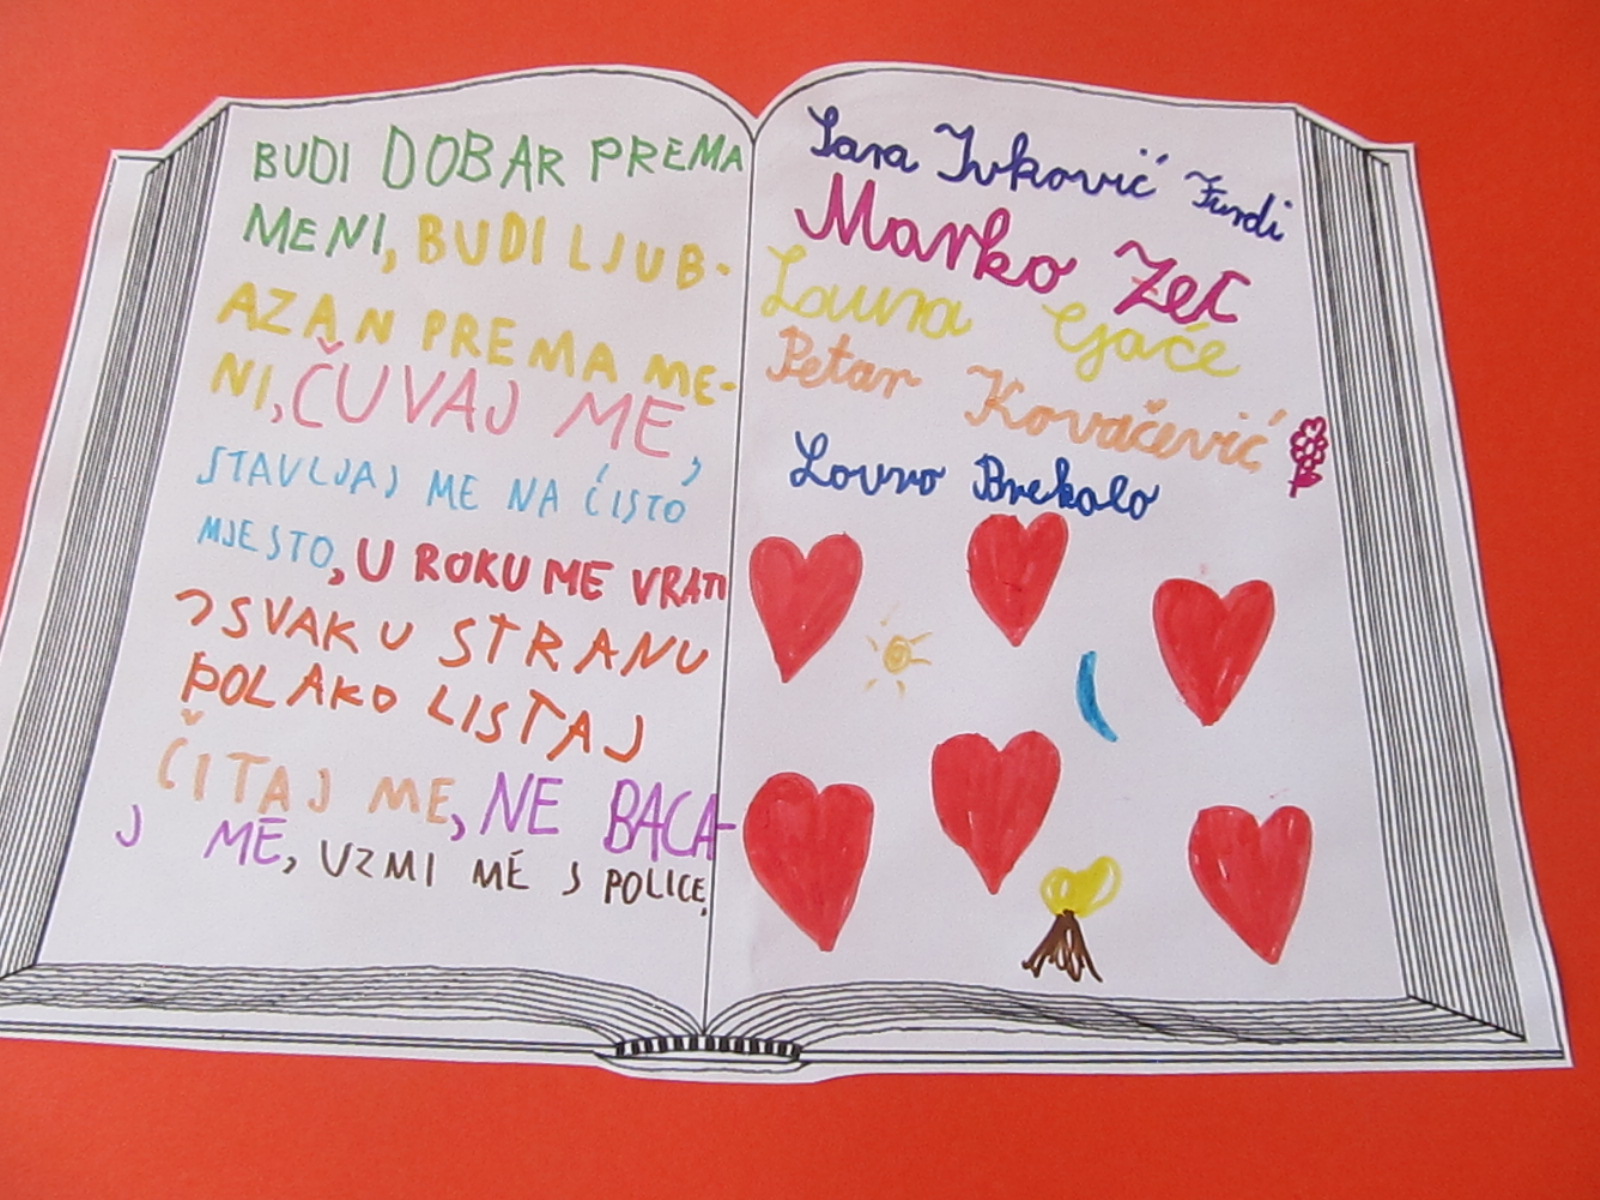 BUDI DOBAR PREMA
MENI, BUDI LJUB-
AZAN PREMA ME-
NI, ČUVAJ ME,
STAVLJAJ ME NA ĆISTO
MJESTO, U ROKU ME VRATI
, SVAKU STRANU
POLAKO LISTAJ
ČITAJ ME, NE BACA-
J ME, UZMI ME S POLICE,
Sara Ivković Furdi
Marko Zec
Laura
Petar Kovačević
Lovro Brekalo